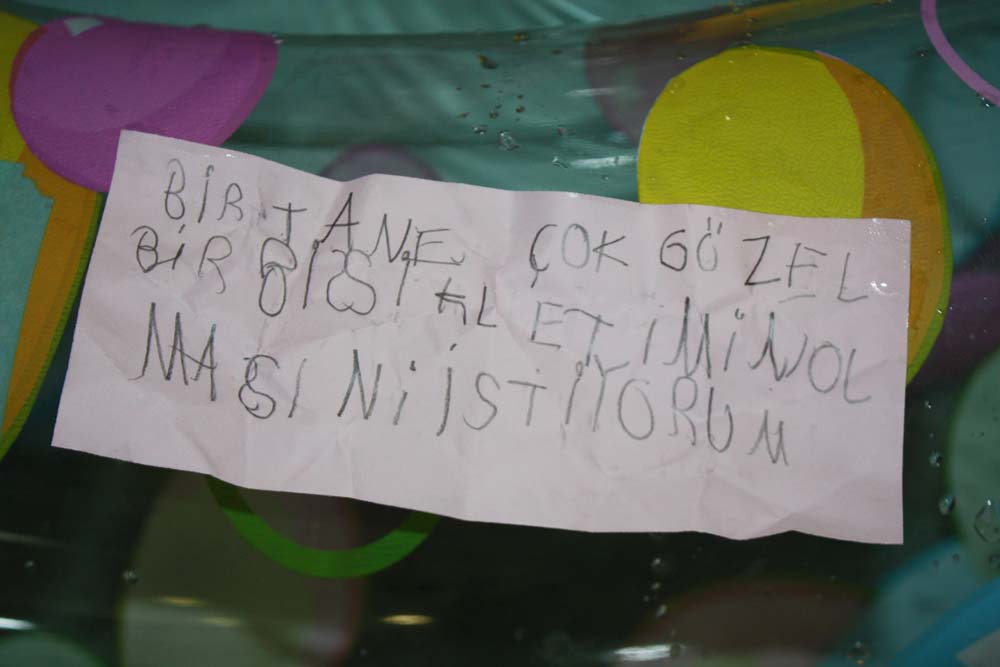 BİR TANE ÇOK GÖZEL
BİR BİSİ KLETİMİNOL
MASI Nİ İSTİYORUM